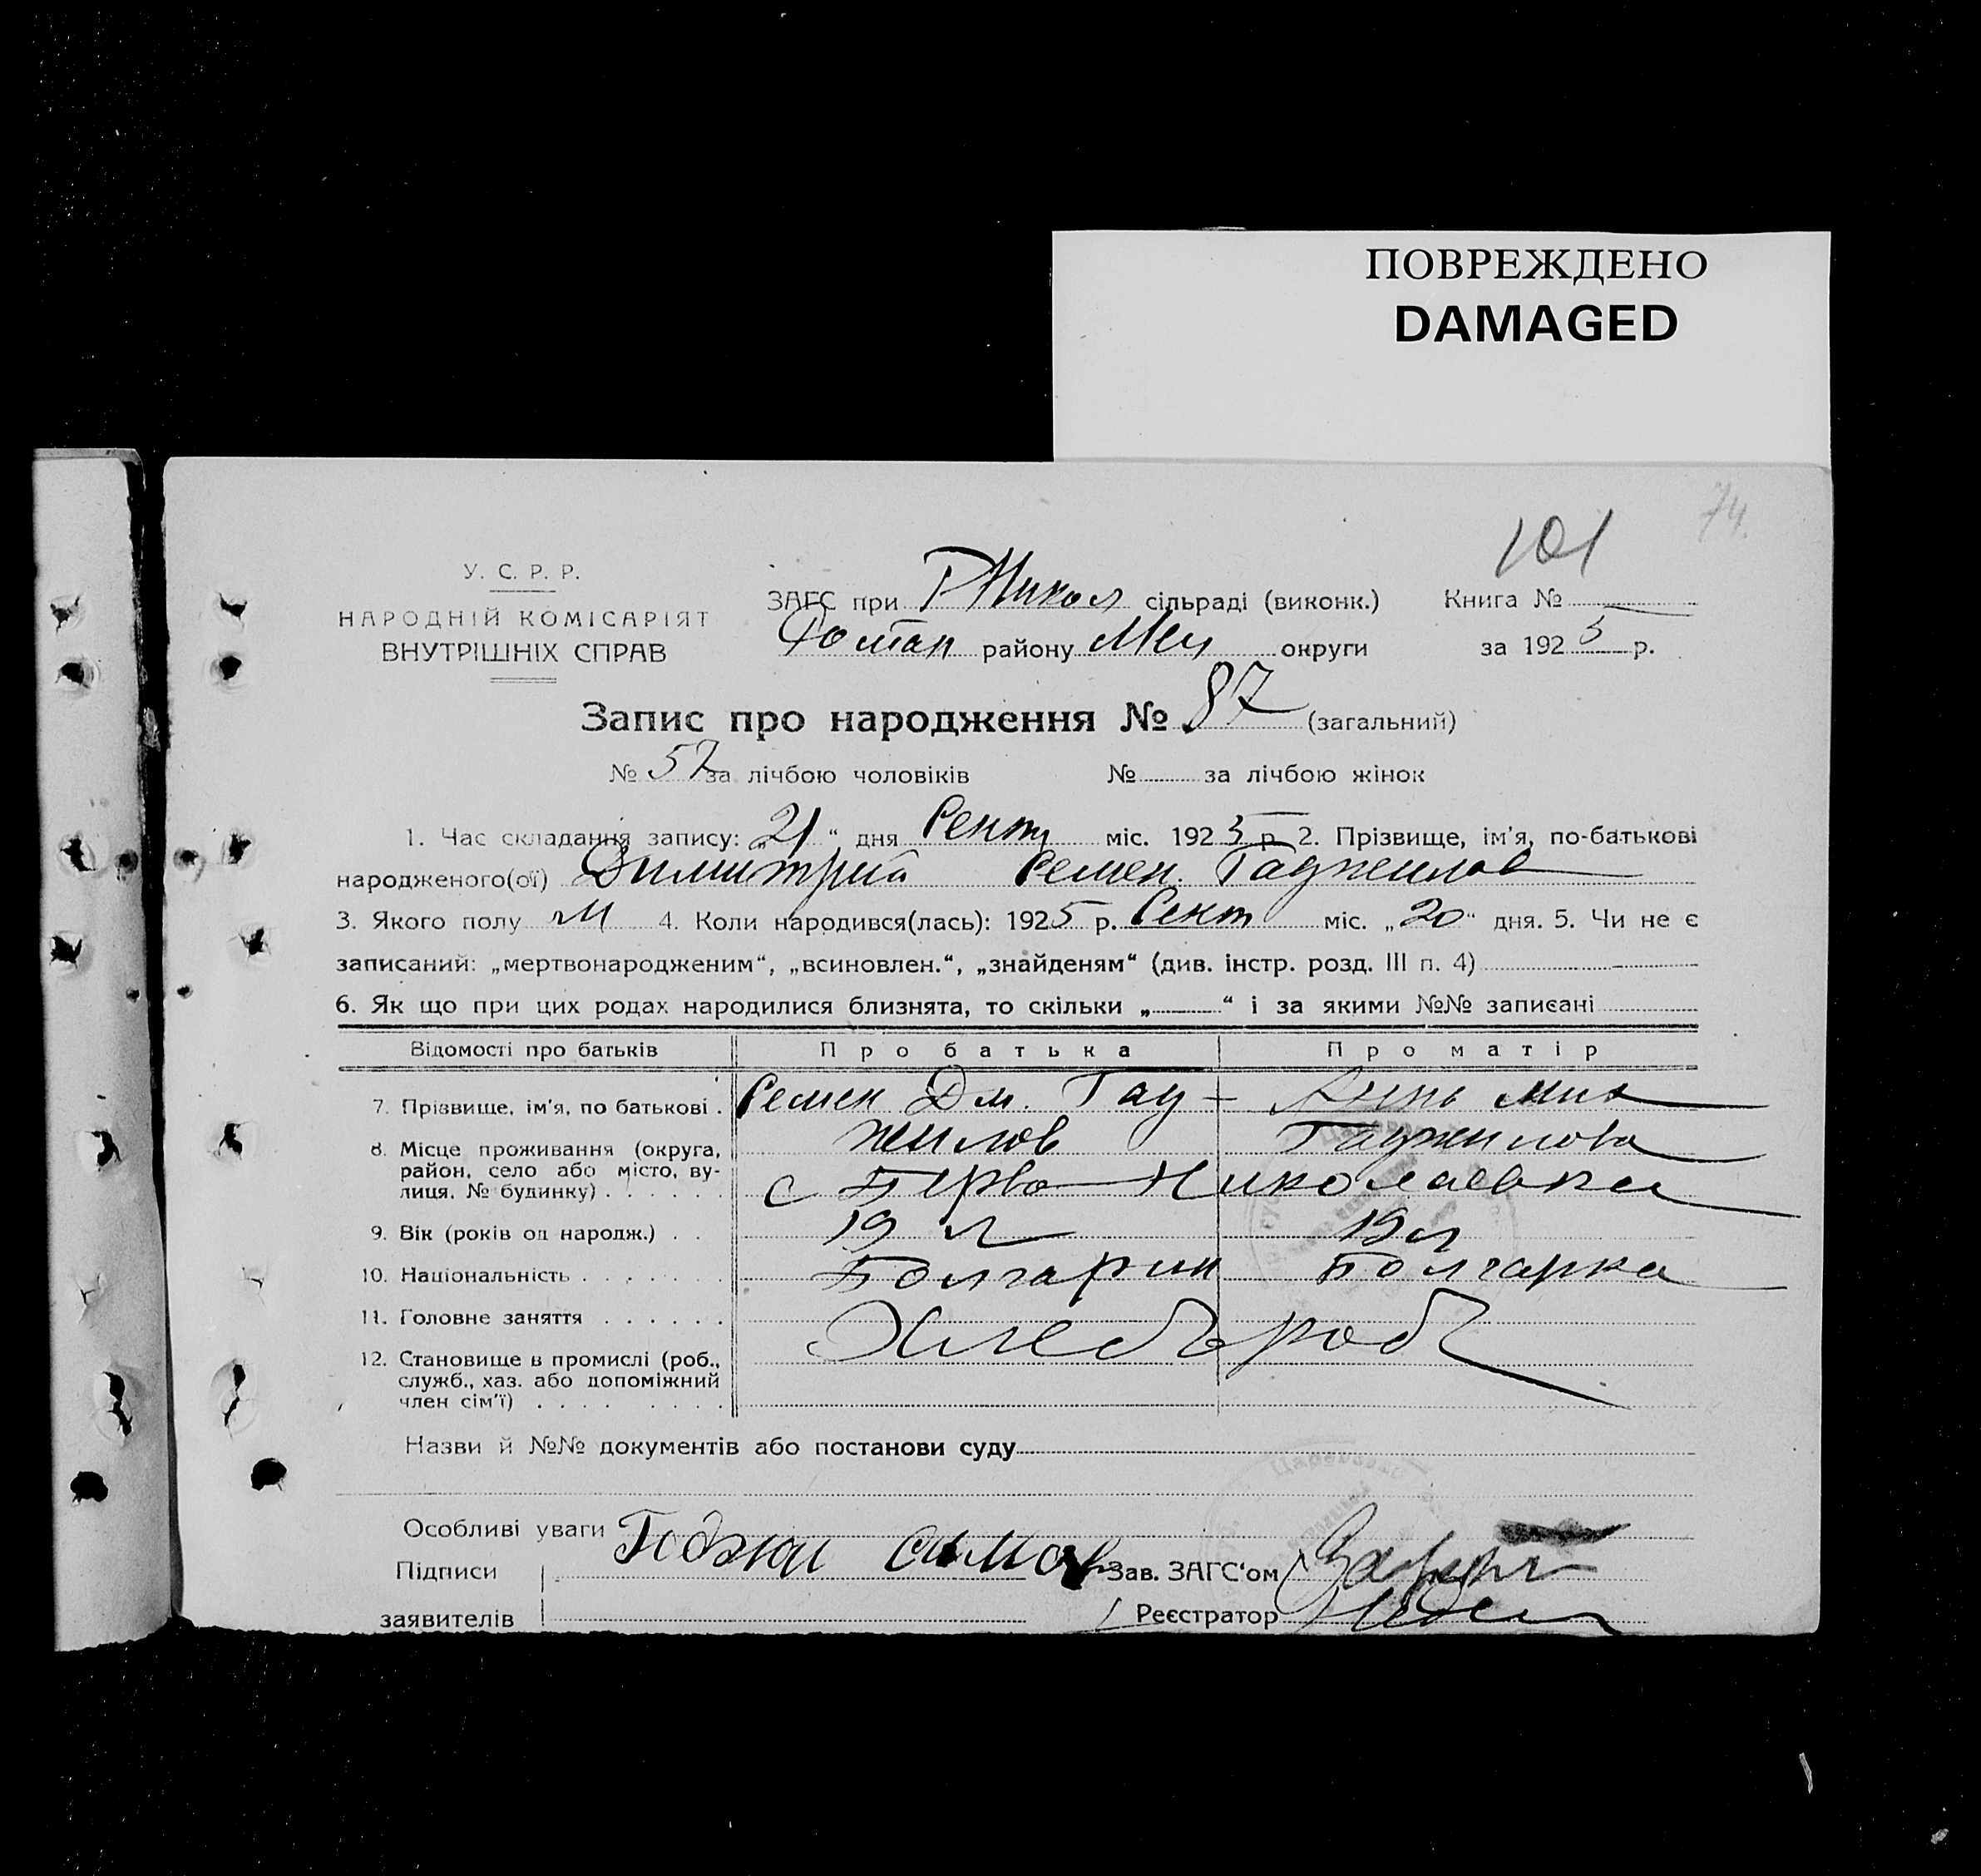 ПОВРЕЖДЕНО
DAMAGED
74.
101
У. С. Р. Р.
НАРОДНІЙ КОМІСАРІЯТ
ВНУТРІШНІХ СПРАВ
ЗАГС при РНикол сільраді (виконк.) Книга №
району Мел округи за 1925 р.
Запис про народження № 87 (загальний)
№ 57 за лічбою чоловіків № за лічбою жінок
1. Час складання запису: „21“ дня Сент міс. 1925 р. 2. Прізвище, ім'я, по-батькові
народженого(ої) Димитрий Семен. Гаджилов
3. Якого полу М 4. Коли народився(лась): 1925 р. Сент міс. „20“ дня. 5. Чи не є
записаний: „мертвонародженим“, „всиновлен.“, „знайденям“ (див. інстр. розд. III п. 4)
6. Як що при цих родах народилися близнята, то скільки „ “ і за якими №№ записані
Відомості про батьків Про батька Про матір
7. Прізвище, ім'я, по батькові . Семен Дм. Гад- Анна Мих
жилов Гаджилова
8. Місце проживання (округа,
район, село або місто, ву-
лиця, № будинку) . . . . . . с Перво-Николаевка
9. Вік (років од народж.) . . 19 л 19 л
10. Національність . . . . . . . Болгарин Болгарка
11. Головне заняття . . . . . . Хлебороб
12. Становище в промислі (роб.,
служб., хаз. або допоміжний
член сім'ї) . . . . . . . .
Назви й №№ документів або постанови суду
Особливі уваги
Підписи Зав. ЗАГС'ом
заявителів Реєстратор